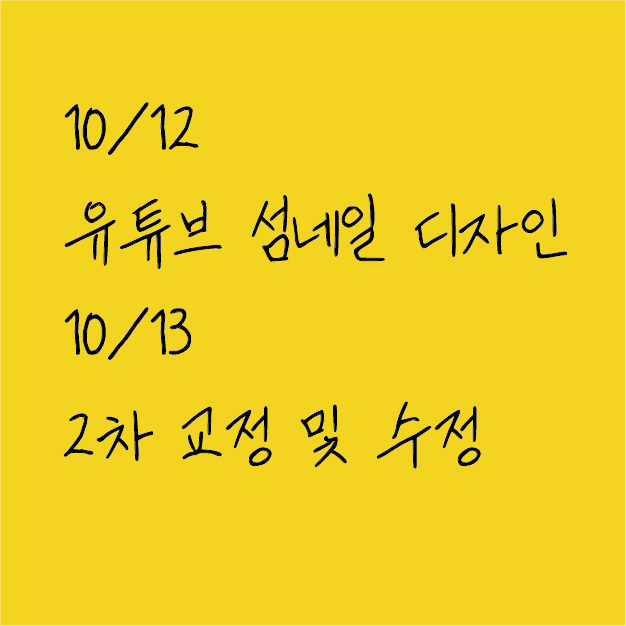 10/12
유튜브 섬네일 디자인
10/13
2차 교정 및 수정